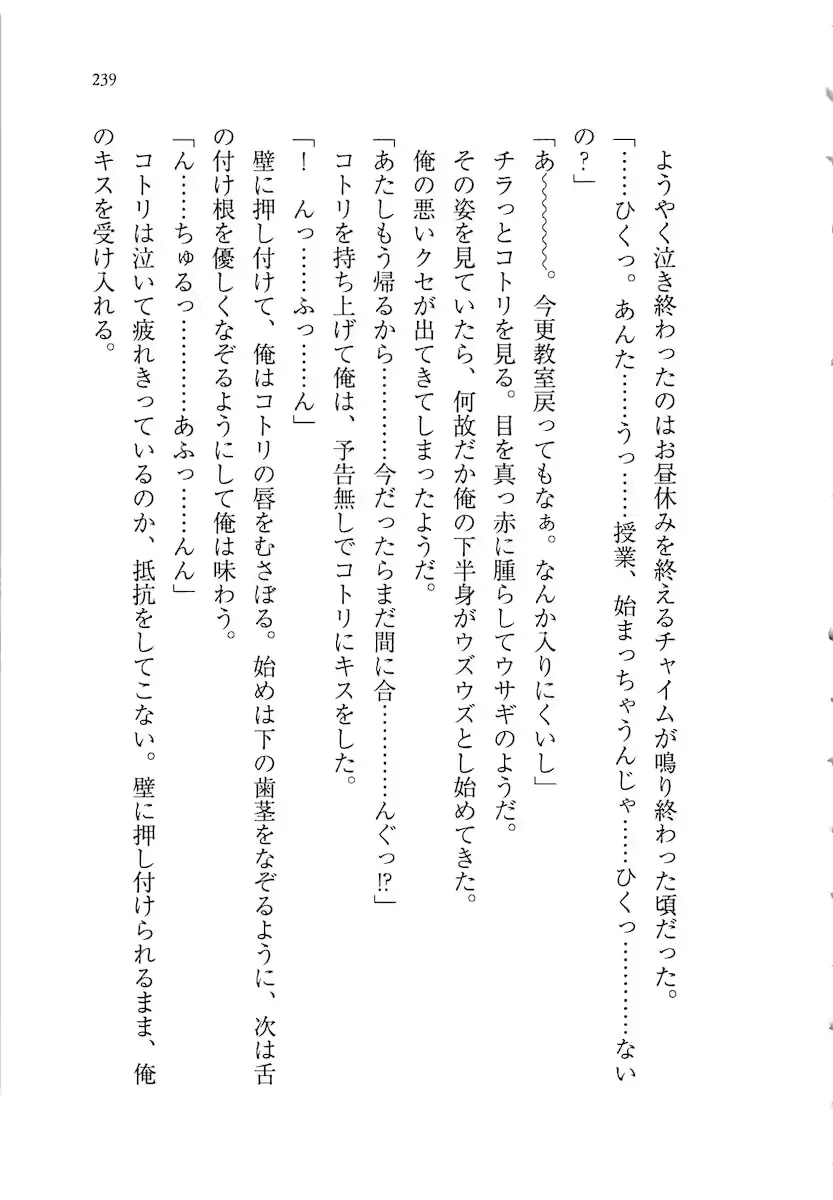 239
ようやく泣き終わったのはお昼休みを終えるチャイムが鳴り終わった頃だった。
「……ひくっ。あんた……うっ……授業、始まっちゃうんじゃ……ひくっ…………ない
の?」
「あ~~~~~~。今更教室戻ってもなぁ。なんか入りにくいし」
チラっとコトリを見る。目を真っ赤に腫らしてウサギのようだ。
その姿を見ていたら、何故だか俺の下半身がウズウズとし始めてきた。
俺の悪いクセが出てきてしまったようだ。
「あたしもう帰るから…………今だったらまだ間に合…………んぐっ!?」
コトリを持ち上げて俺は、予告無しでコトリにキスをした。
「! んっ……ふっ……ん」
壁に押し付けて、俺はコトリの唇をむさぼる。始めは下の歯茎をなぞるように、次は舌
の付け根を優しくなぞるようにして俺は味わう。
「ん……ちゅるっ…………あふっ……んん」
コトリは泣いて疲れきっているのか、抵抗をしてこない。壁に押し付けられるまま、俺
のキスを受け入れる。